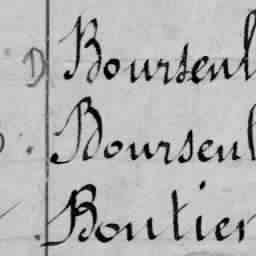 D Bourseul
Bourseul
Boutier